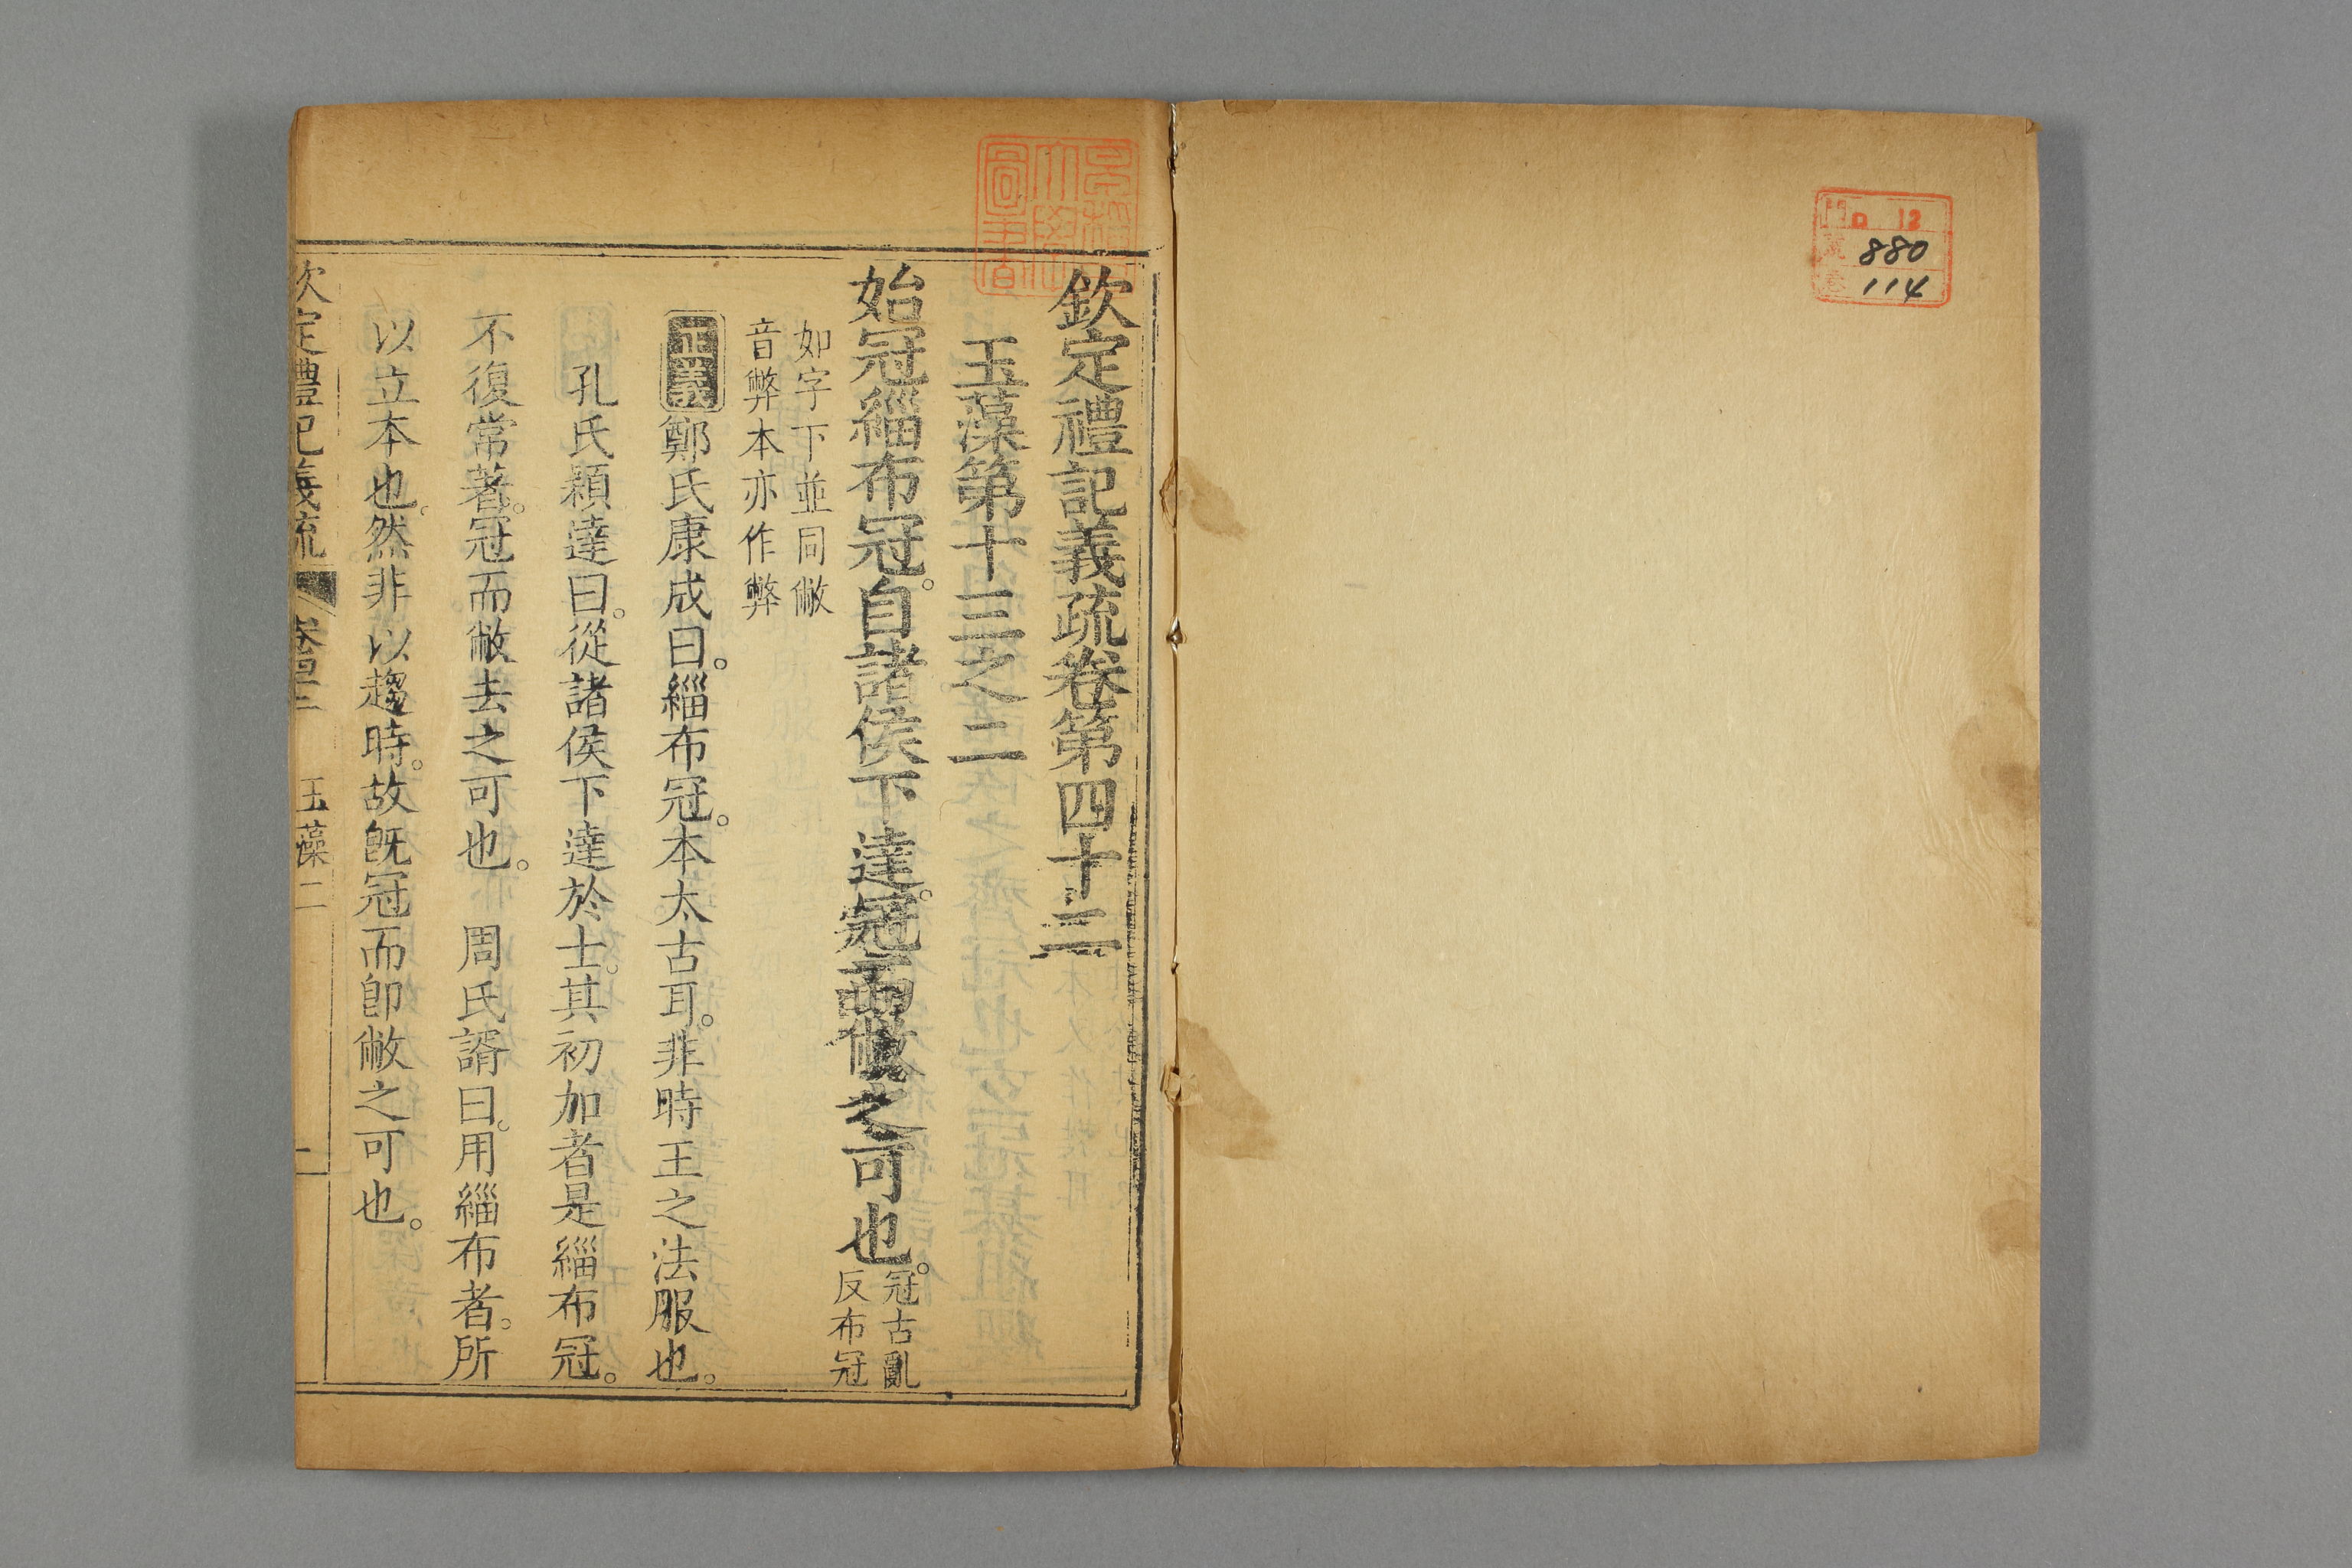 門ロ 12
880
114
欽定禮記義疏卷第四十二
玉藻第十三之二
始冠緇布冠。自諸侯下達。冠而敝之可也。冠古亂
反布冠
如字下並同敝
音弊本亦作弊
正義 鄭氏康成曰。緇布冠。本太古耳。非時王之法服也。
孔氏穎達曰。從諸侯下達於士。其初加者是緇布冠。
不復常著。冠而敝去之可也。 周氏諝曰。用緇布者。所
以立本也。然非以趨時。故旣冠而卽敝之可也。
欽定禮記義疏 卷四十二 玉藻二 一